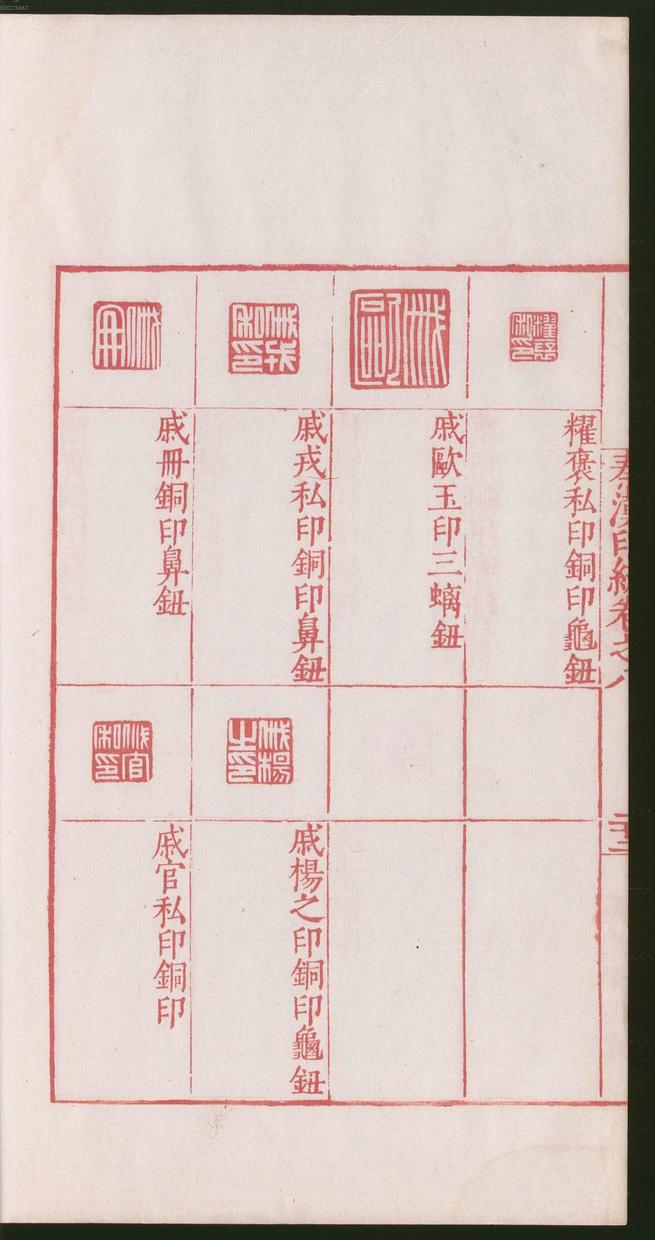 00073467
糴褒私印銅印龜鈕
戚歐玉印三螭鈕
戚戎私印銅印鼻鈕
戚冊銅印鼻鈕
戚楊之印銅印龜鈕
戚官私印銅印